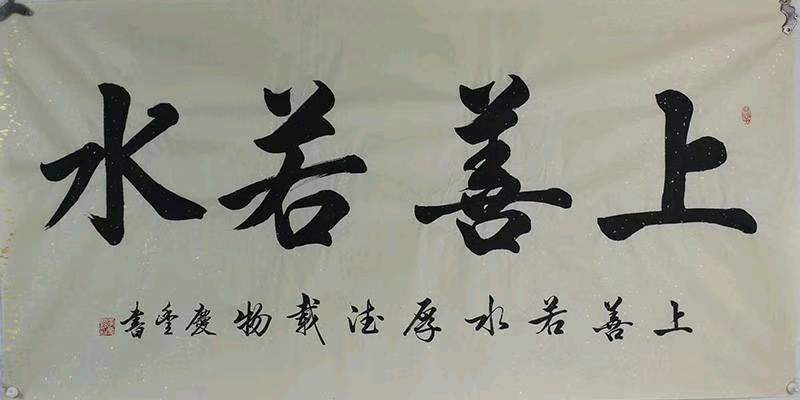 上善若水
上善若水厚德载物慶奎書